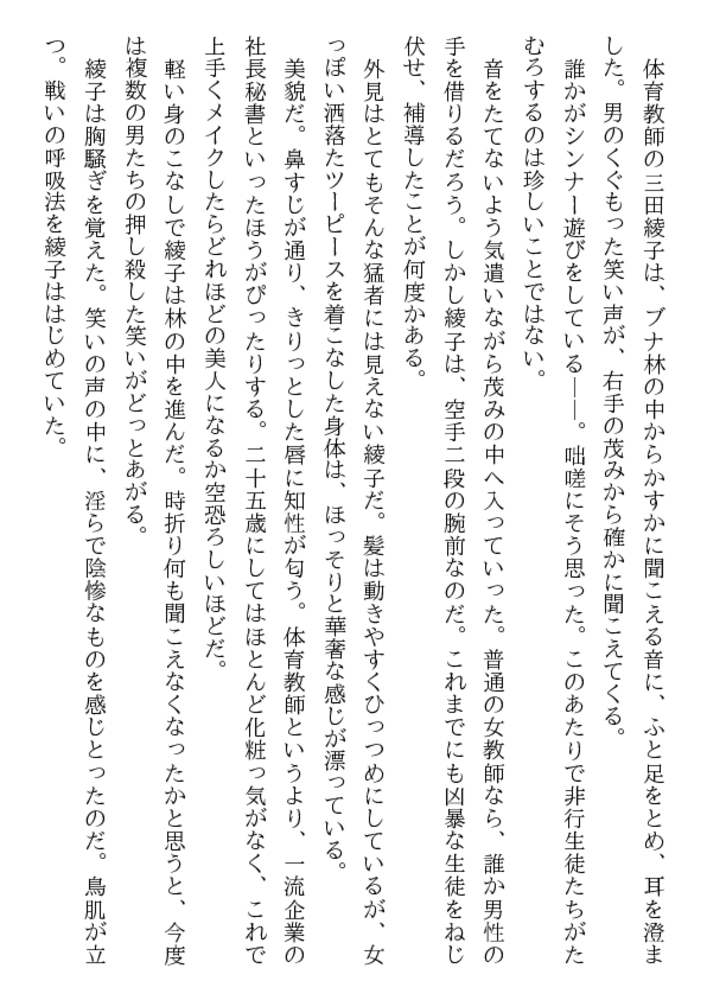 体育教師の三田綾子は、ブナ林の中からかすかに聞こえる音に、ふと足をとめ、耳を澄ま
した。男のくぐもった笑い声が、右手の茂みから確かに聞こえてくる。
　誰かがシンナー遊びをしている――。咄嗟にそう思った。このあたりで非行生徒たちがた
むろするのは珍しいことではない。
　音をたてないよう気遣いながら茂みの中へ入っていった。普通の女教師なら、誰か男性の
手を借りるだろう。しかし綾子は、空手二段の腕前なのだ。これまでにも凶暴な生徒をねじ
伏せ、補導したことが何度かある。
　外見はとてもそんな猛者には見えない綾子だ。髪は動きやすくひっつめにしているが、女
っぽい洒落たツーピースを着こなした身体は、ほっそりと華奢な感じが漂っている。
　美貌だ。鼻すじが通り、きりっとした唇に知性が匂う。体育教師というより、一流企業の
社長秘書といったほうがぴったりする。二十五歳にしてはほとんど化粧っ気がなく、これで
上手くメイクしたらどれほどの美人になるか空恐ろしいほどだ。
　軽い身のこなしで綾子は林の中を進んだ。時折り何も聞こえなくなったかと思うと、今度
は複数の男たちの押し殺した笑いがどっとあがる。
　綾子は胸騒ぎを覚えた。笑いの声の中に、淫らで陰惨なものを感じとったのだ。鳥肌が立
つ。戦いの呼吸法を綾子ははじめていた。